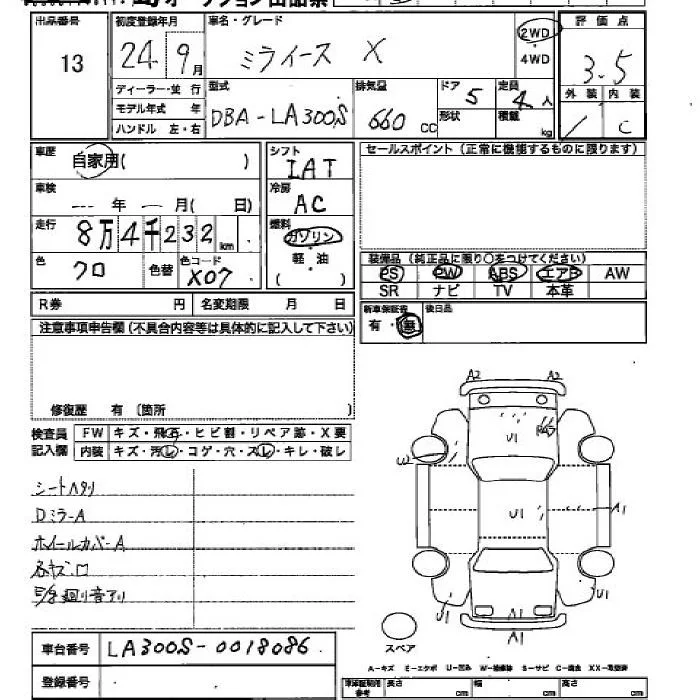 出品番号 初度登録年月 車名・グレード 評価点
13 24 9月 ミライース X 2WD 4WD 3.5
ディーラー・並行 型式 排気量 ドア 5 定員 4人 外装 内装
モデル年式 年 DBA-LA300S 660cc 形状 積載 kg / C
ハンドル 左・右
車歴 自家用( ) シフト IAT セールスポイント (正常に機能するものに限ります)
車検 --- 年 - 月( 日) 冷房 AC
走行 8万4千232km 燃料 ガソリン
色 クロ 色替 色コード X07 軽・油 ( )
装備品 (純正品に限り○をつけてください)
PS PW ABS エアB AW
SR ナビ TV 本革
R券 円 名変期限 月 日 新車保証書 有・無 後日品
注意事項申告欄(不具合内容等は具体的に記入して下さい)
修復歴 有 (箇所 )
検査員 FW キズ・飛石・ヒビ割・リペア跡・X要
記入欄 内装 キズ・汚レ・コゲ・穴・スレ・キレ・破レ
シートヘタリ
Dミラ-A
ホイールカバ-A
A2 A2
U1
W
U1 A1
U1 U1
A1
スペア
車台番号 LA300S-0018086
登録番号
A-キズ E-エクボ U-凹み W-補修跡 S-サビ C-腐食 XX-取替済
車庫証明用参考 長さ cm 幅 cm 高さ cm